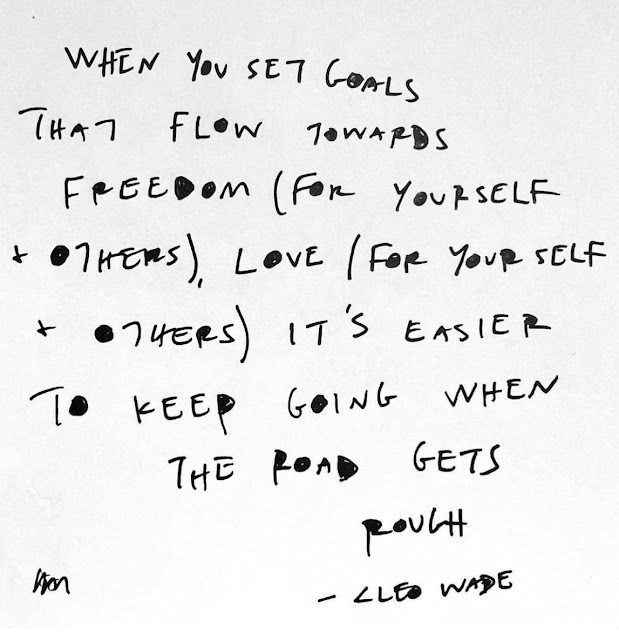 WHEN YOU SET GOALS
THAT FLOW TOWARDS
FREEDOM (FOR YOURSELF
+ OTHERS), LOVE (FOR YOURSELF
+ OTHERS) IT'S EASIER
TO KEEP GOING WHEN
THE ROAD GETS
ROUGH
- CLEO WADE